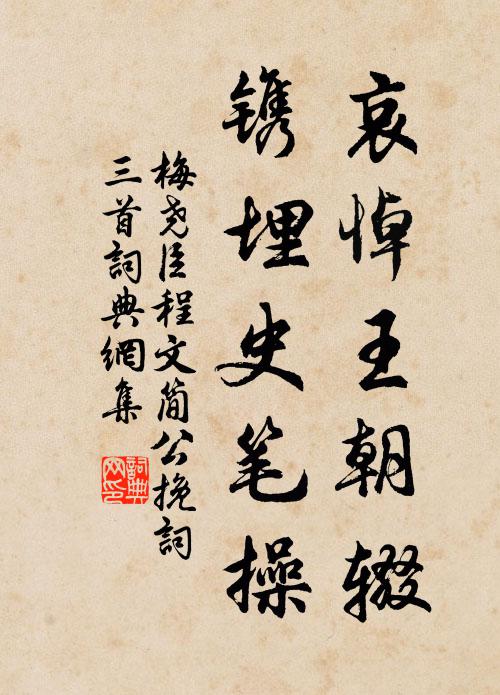 哀悼王朝辍
镌埋史笔操
梅尧臣程文简公挽詞
三首詞典網集
詞典网印